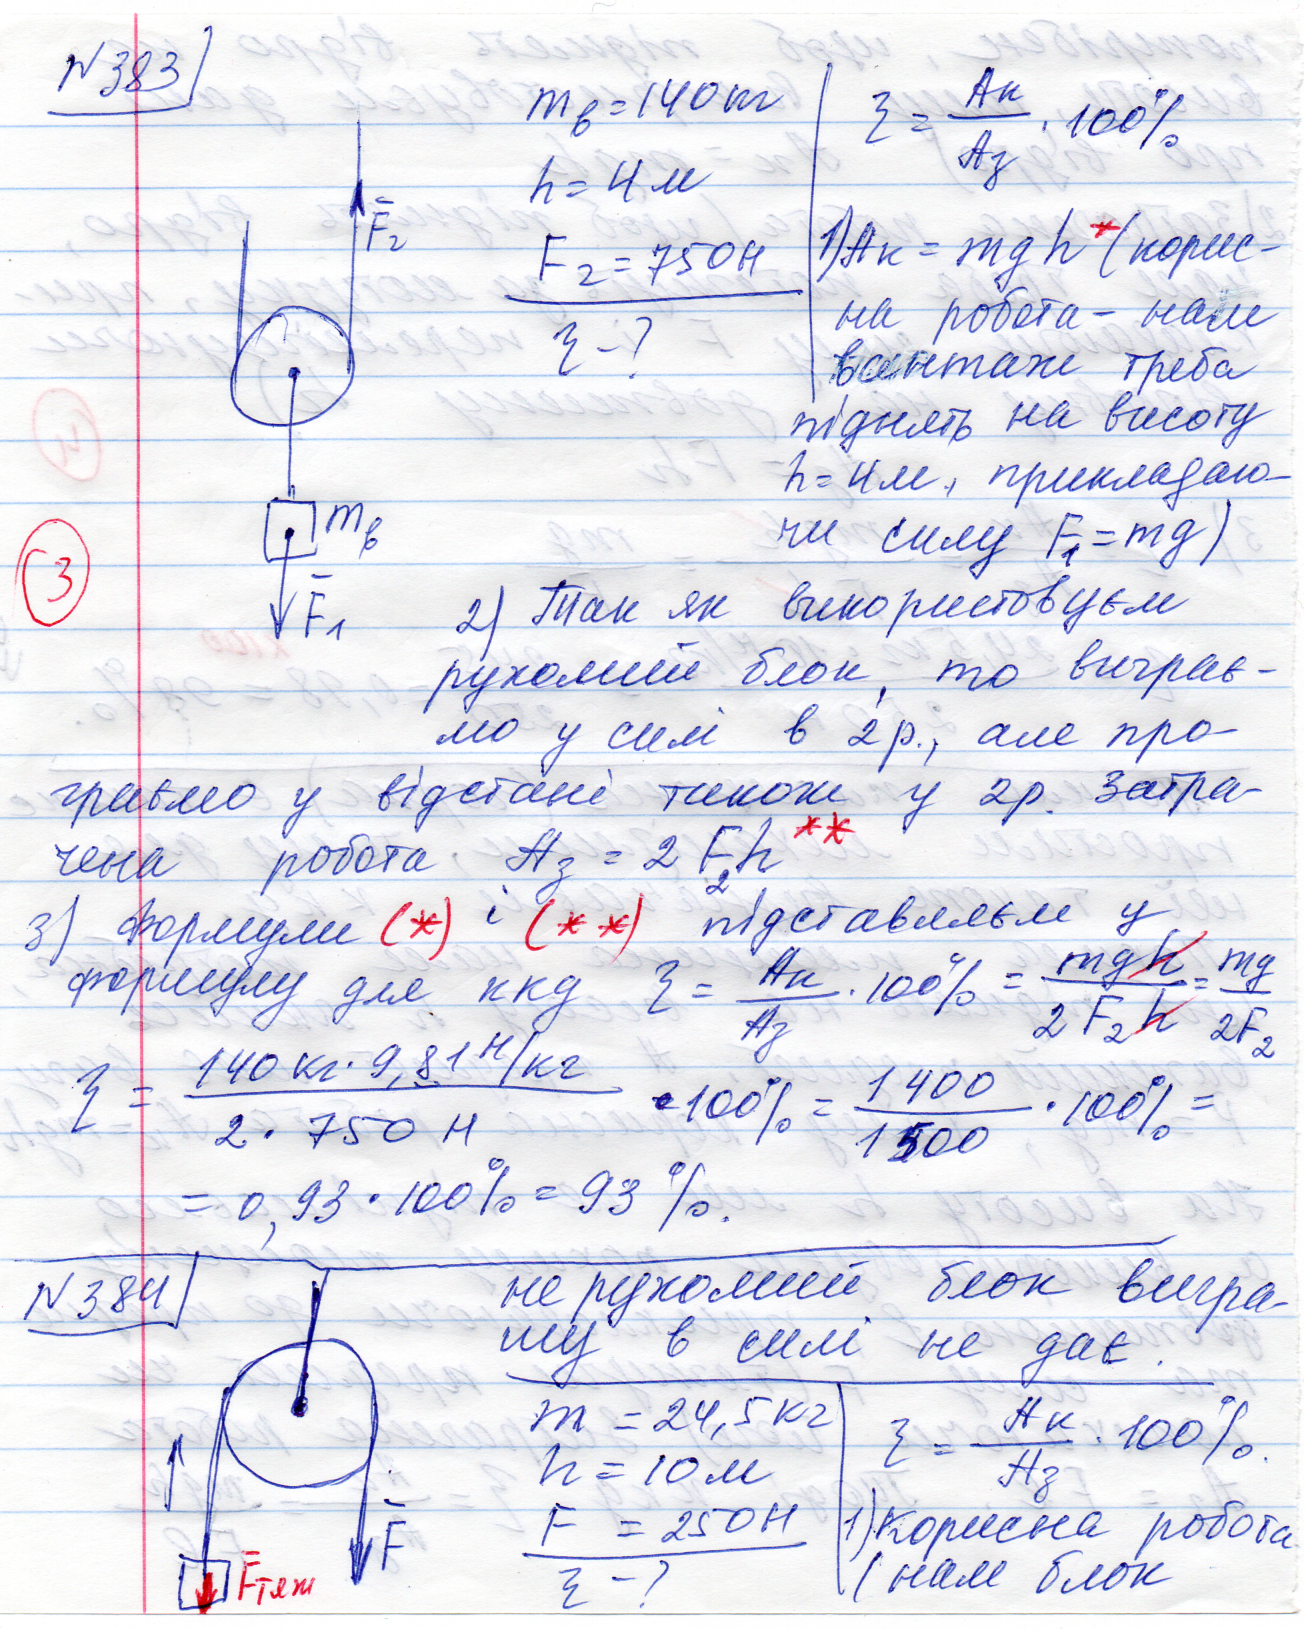 N383
m_в = 140 кг
h = 4 м
F₂ = 750 Н
ξ - ?
F̄₂
m_в
F̄₁
ξ = Aк/Aз · 100%
1) Aк = mgh * (корис-
на робота - нам
вантаж треба
піднять на висоту
h = 4 м, прикладаю-
чи силу F₁ = mg)
3
2) Так як використовуєм
рухомий блок, то виграє-
мо у силі в 2 р., але про-
граємо у відстані також у 2р. Затра-
чена робота Aз = 2 F₂h **
3) Формули (*) і (**) підставляєм у
формулу для ккд ξ = Aк/Aз · 100% = mgh/2F₂h = mg/2F₂
ξ = 140 кг · 9,81 Н/кг / 2 · 750 Н · 100% = 1400/1500 · 100% =
= 0,93 · 100% = 93%.
N384
не рухомий блок вигра-
шу в силі не дає.
m = 24,5 кг
h = 10 м
F = 250 Н
ξ - ?
F̄
F̄тяж
ξ = Aк/Aз · 100%.
1) Корисна робота
(нам блок